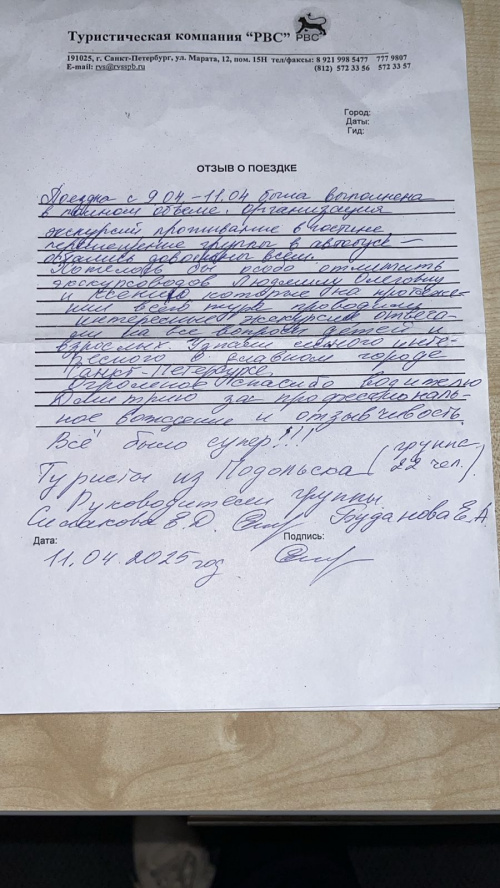 Туристическая компания “РВС”
РВС
191025, г. Санкт-Петербург, ул. Марата, 12, пом. 15Н тел/факсы: 8 921 998 5477 777 9807
E-mail: rvs@rvsspb.ru (812) 572 33 56 572 33 57
Город:
Даты:
Гид:
ОТЗЫВ О ПОЕЗДКЕ
Поездка с 9.04 – 11.04 была выполнена
в полном объеме. Организация
экскурсий проживание в гостинице,
перемещение группы в автобусе –
остались довольны всем.
Хотелось бы особо отметить
экскурсоводов Людмилу Олеговну
и Ксению, которые на протяже-
нии всего тура проводили
интересные экскурсии отвеча-
ли на все вопросы детей и
взрослых. Узнали много инте-
ресного о славном городе
Санкт-Петербурге.
Огромное спасибо водителю
Дмитрию за профессиональ-
ное вождение и отзывчивость.
Всё было супер!!!
Туристы из Подольска (группа 22 чел.)
Руководители группы
Е.Д. Буданова Е.А.
Дата: Подпись:
11.04.2025 год